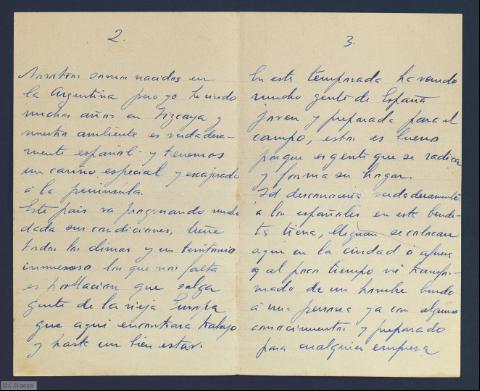 2.
Nosotros somos nacidos en
la Argentina pero yo he vivido
muchos años en Vizcaya y
nuestro ambiente es verdadera-
mente español y tenemos
un cariño especial y exagerado
á la peninsula.
Este pais va progresando mucho
dada sus condiciones, tiene
todos los climas y un territorio
inmenso lo que nos falta
es poblacion que salga
gente de la vieja Europa
que aqui encontrara trabajo
y hasta un bien estar.
3.
En esta temporada ha venido
mucha gente de España
joven y preparada para el
campo, esto es bueno
porque es gente que se radica
y forma su hogar.
Vd desconoceria verdaderamente
á los españoles en esta bendi-
ta tierra, llegan se colocan
aqui en la ciudad ó afuera
y al poco tiempo ve transfor-
mado de un hombre rudo
á una persona ya con algunos
conocimientos y preparado
para cualquier empresa